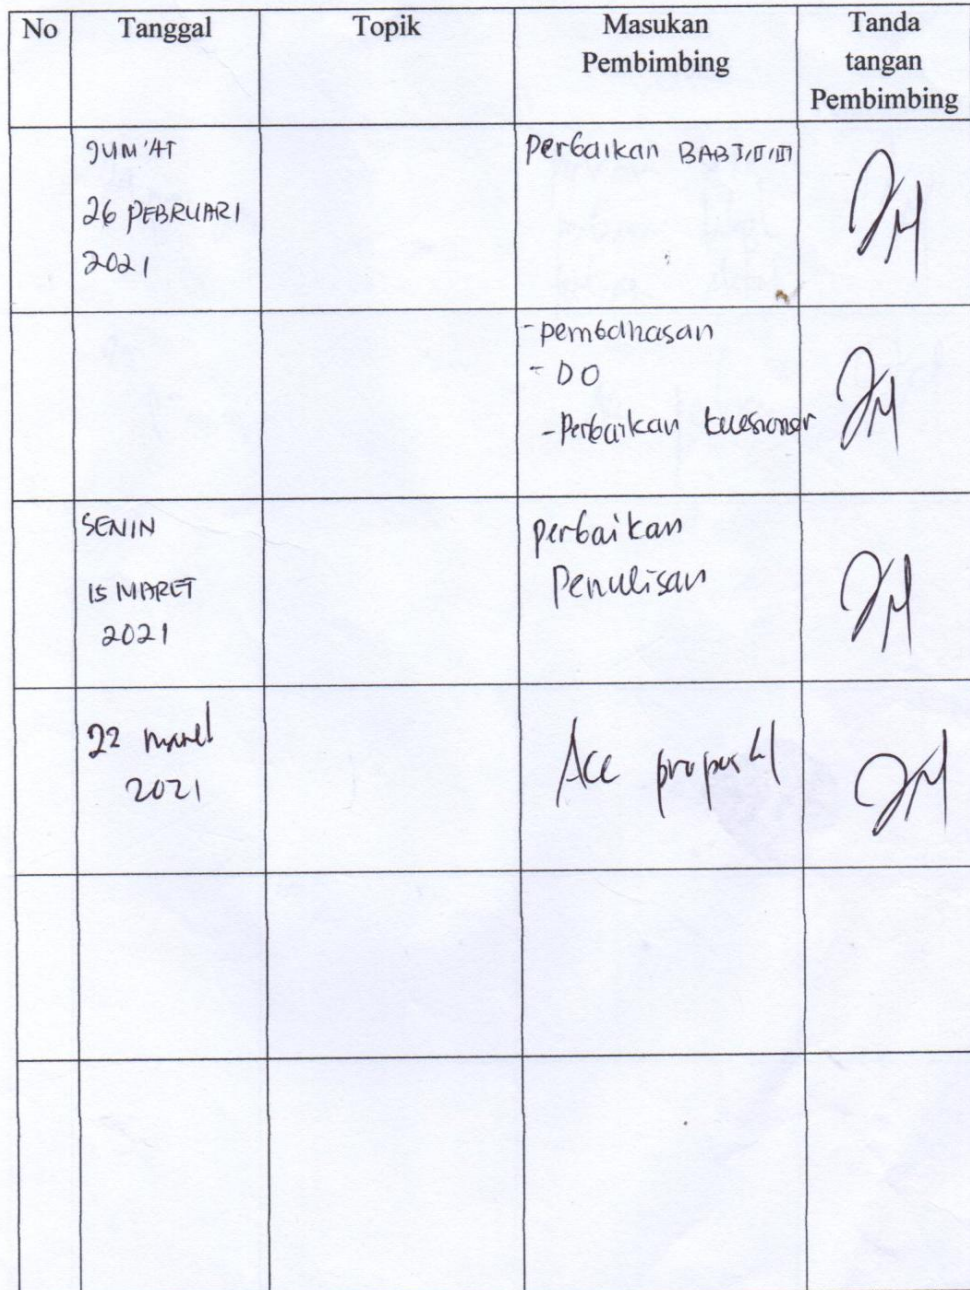 No Tanggal Topik Masukan Pembimbing Tanda tangan Pembimbing
JUM'AT
26 PEBRUARI
2021
perbaikan BAB I,II,III
- pembahasan
- DO
- Perbaikan kuesioner
SENIN
15 MARET
2021
perbaikan
Penulisan
22 maret
2021
Acc proposal